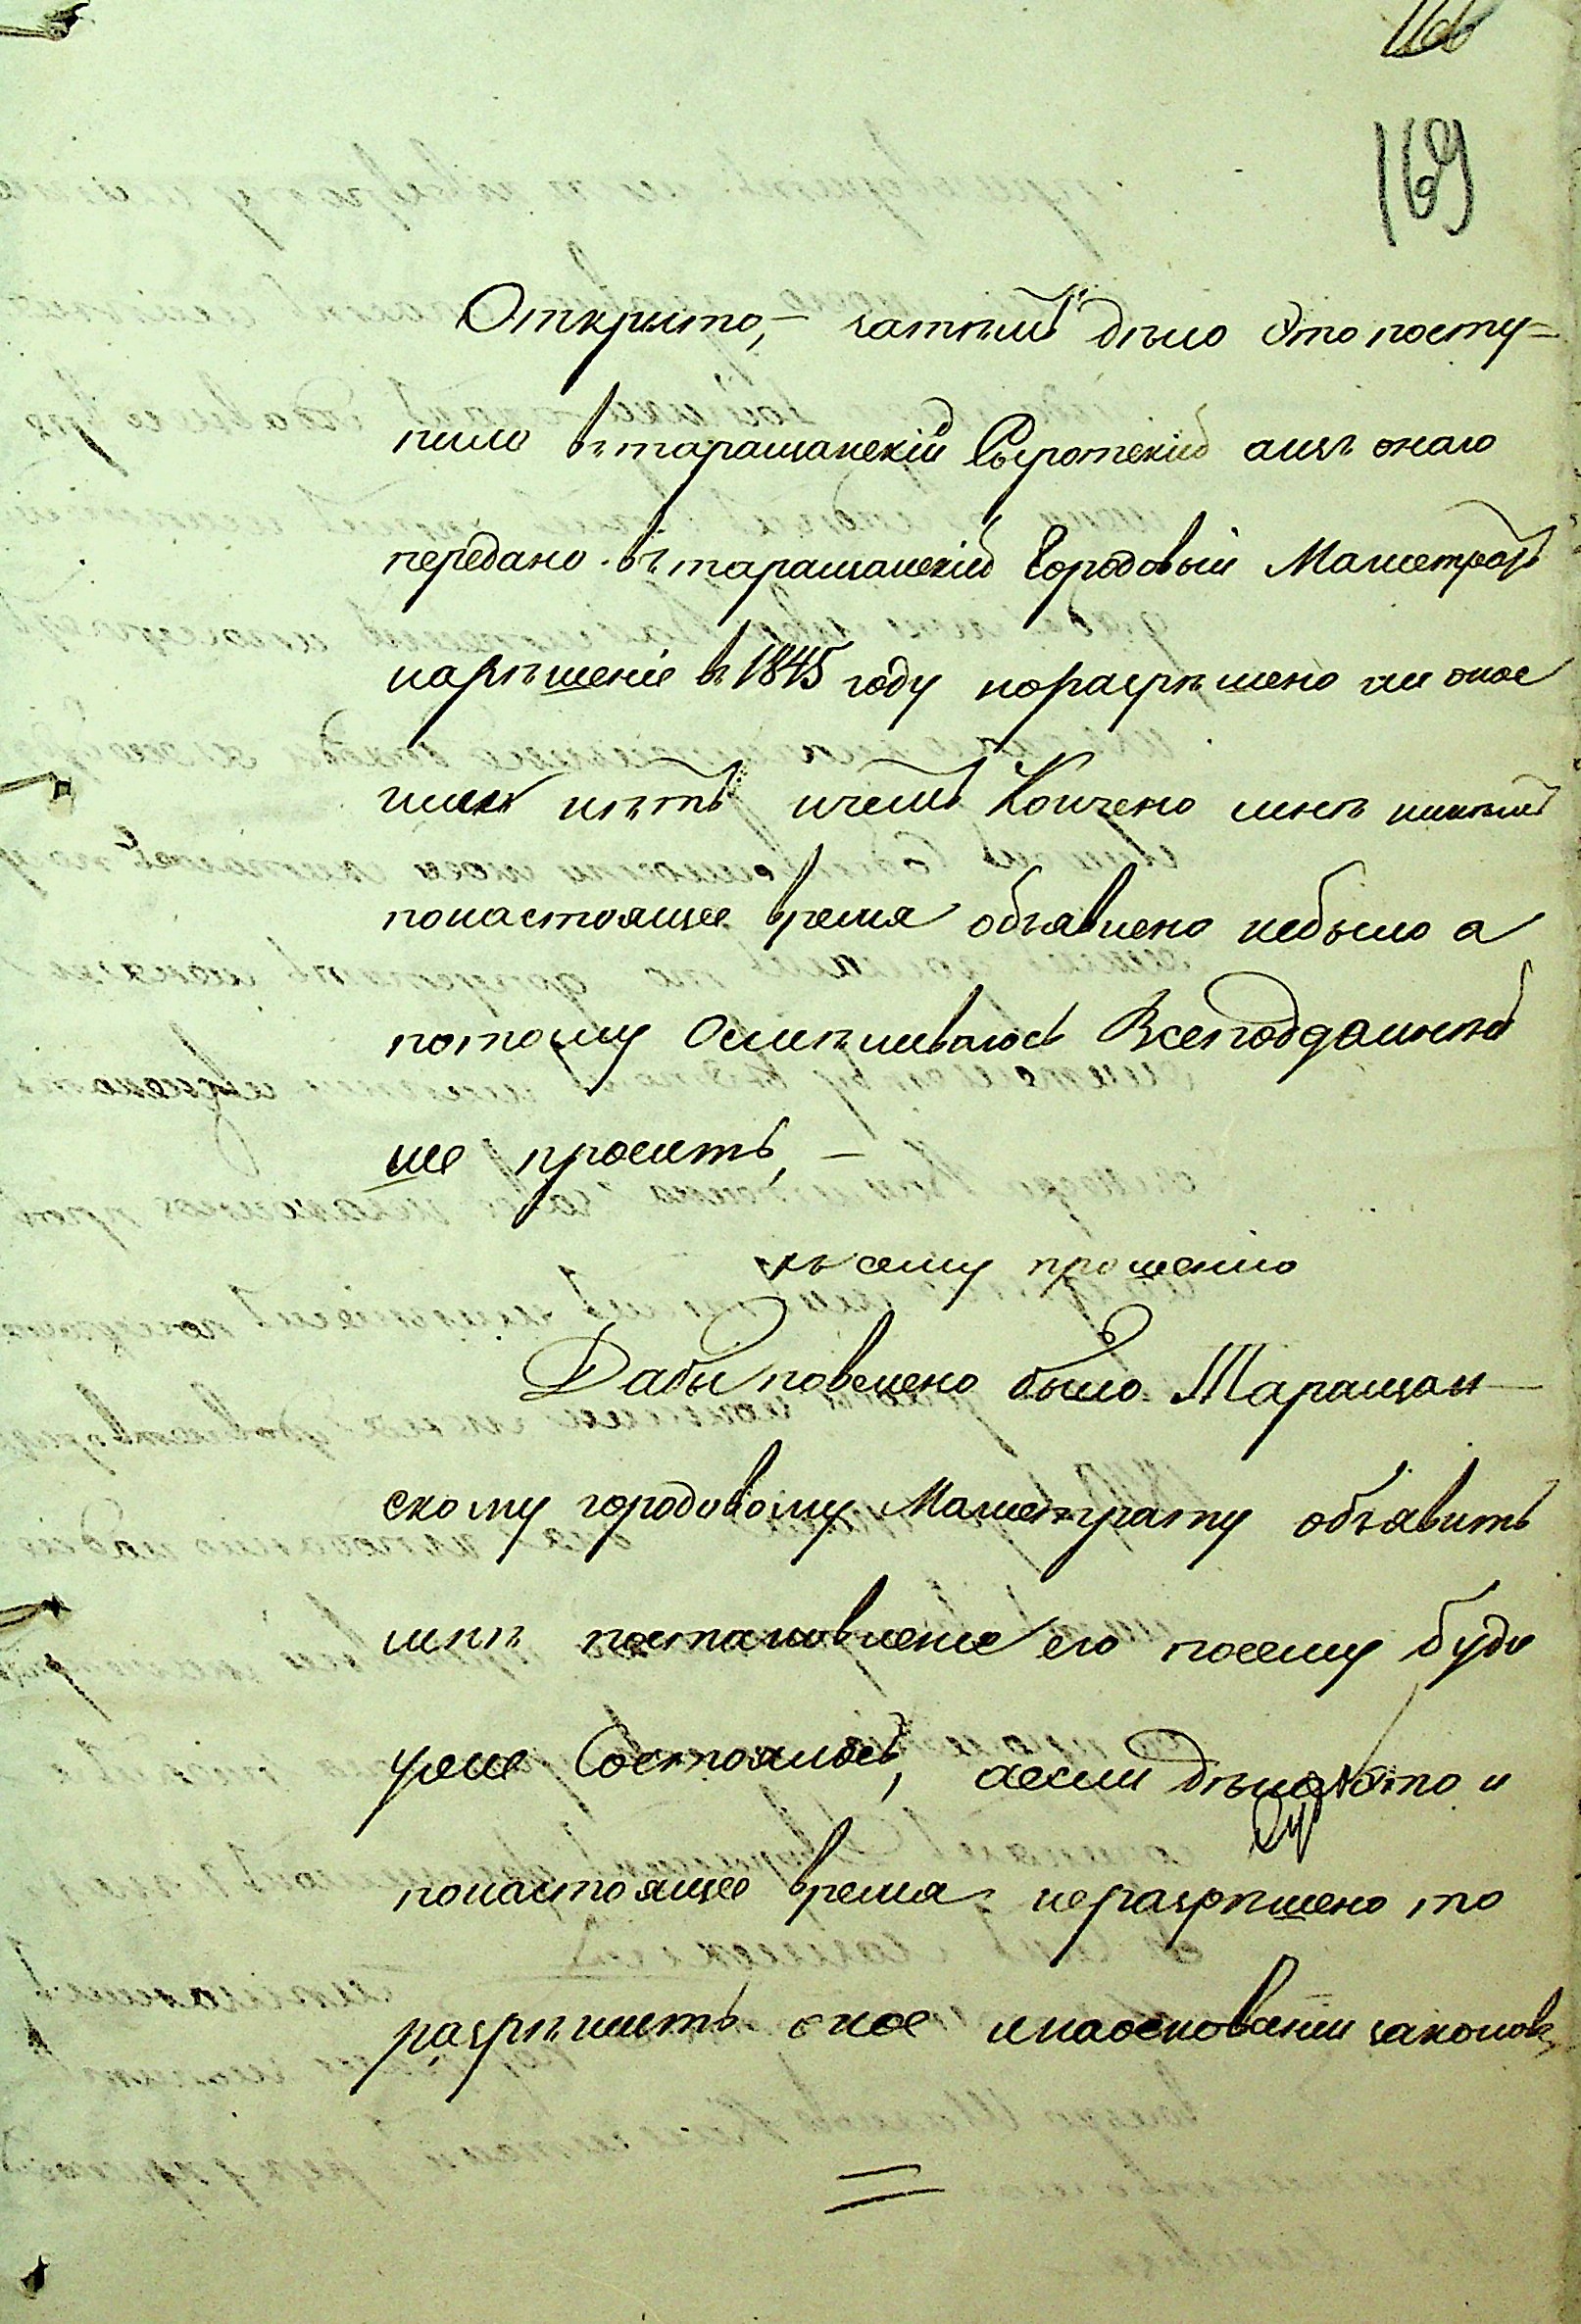 169
Открыто, — затѣмъ дѣло Это посту=
пило вътаращанскій Сыротскій аизъ онаго
передано вътаращанскій Городовый Магистратъ
нарѣшеніе въ 1845 году норазрѣшено ли оное
или нѣтъ ичемъ Кончено мнѣ никемъ
понастоящее время объявлено небыло а
потому Осмѣливаюсь Всеподданнѣй
ше просить, —
къ сему прошенію
Дабы повелено было Таращан—
скому городовому Магистрату объявить
мнѣ постановление его посему буде
уже Состоялось, аесли дѣло Это и
понастоящее время неразрѣшено то
разрѣшить оное инаоснованіи законовъ,